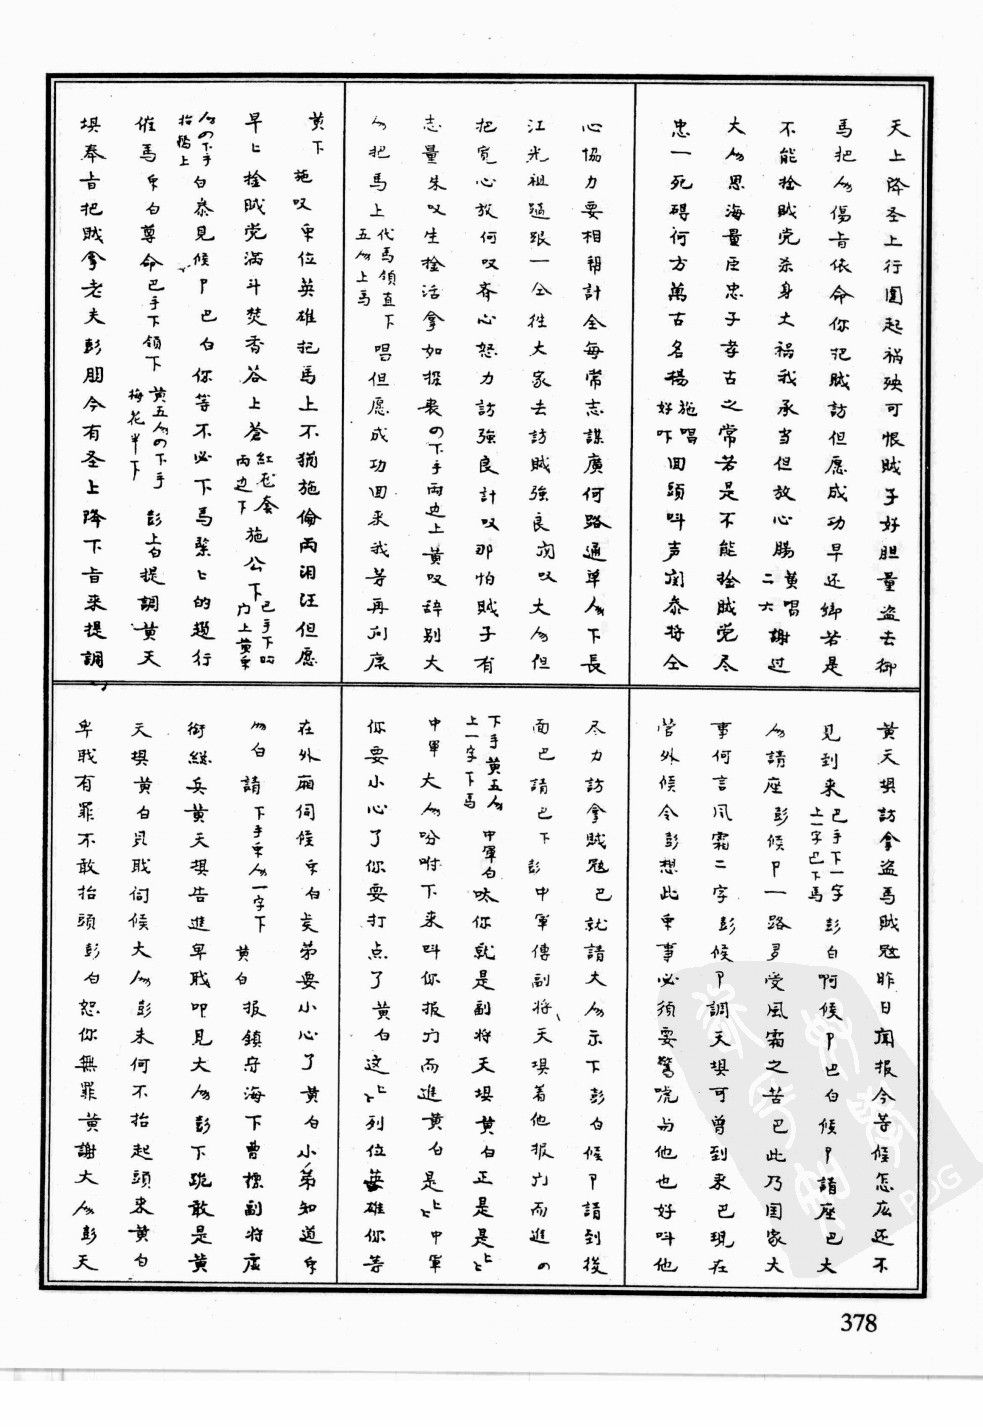 天上降圣上行围起祸殃可恨贼子好胆量盗去御
馬把人傷旨依命你把贼訪但愿成功早还鄉若是
不能捨贼党杀身大禍我承当但放心腸 黄唱二六 謝过
大人恩海量臣忠子孝古之常若是不能捨贼党尽
忠一死碍何方萬古名揚 施唱好吓 回頭叫声関泰将仝
心協力要相帮計全每常志謀廣何路通单人下長
江光祖 跟一仝徃大家去訪贼強良関叹大人但
把宽心放何叹斉心怒力訪強良計叹那怕贼子有
志量朱叹生捨活拿如探囊 の下手両边上 黄叹辞别大
人把馬上 代馬領直下五人上馬 唱但愿成功回来我等再向康
黄下 施叹 众位英雄把馬上不 施倫両泪汪但愿
早匕捨贼党满斗焚香答上蒼 红 套両边下 施公下 巴手下 门上黄众
人の下手抬 上 白泰見候卩巴白你等不必下馬緊匕的趱行
催馬众白尊命巴手下領下 黄五人の下手梅花半下 彭上白提調黄天
埧奉旨把贼拿老夫彭朋今有圣上降下旨来提調
黄天埧訪拿盗馬贼冠昨日聞报今苦候怎広还不
見到来 巴手下一字上一字巴下馬 彭白啊候卩巴白候卩請座巴大
人請座彭候卩一路多受風霜之苦巴此乃国家大
事何言风霜二字彭候卩調天埧可曽到来巴現在
营外候令彭想此事事必须要驚唬与他也好叫他
尽力訪拿贼冠巴就請大人示下彭白候卩請到後
面巴請巴下彭中軍傳副将、天埧着他报门而進の
下手黄五人上一字下馬 中軍白呔你就是副将天埧黄白正是是匕匕
中軍大人吩咐下来叫你报门而進黄白是匕匕中軍
你要小心了你要打点了黄白这匕匕列位英雄你等
在外廂伺候众白矣弟要小心了黄白小弟知道众
人白請 下手众人一字下 黄白 报鎮守海下曹標副将底
衔総兵黄天埧告進卑戝叩見大人彭下跪敢是黄
天埧黄白 戝伺候大人彭未何不抬起頭来黄白
卑戝有罪不敢抬頭彭白恕你無罪黄謝大人彭天
378